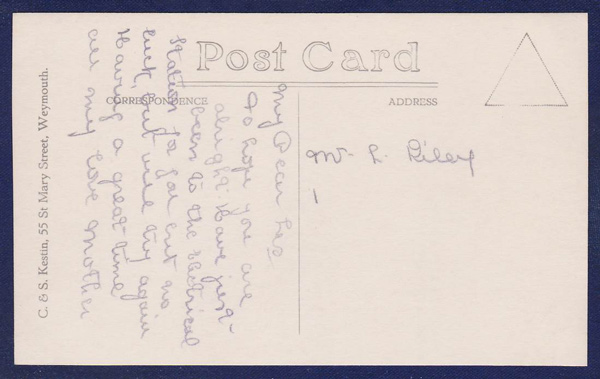 Post Card
CORRESPONDENCE
ADDRESS
My Dear Les
to hope you are
alright. Have just
been to the Electrical
Station but no
luck, but will try again
Having a great time
all my love Mother
Mr L. Riley
C. & S. Kestin, 55 St Mary Street, Weymouth.